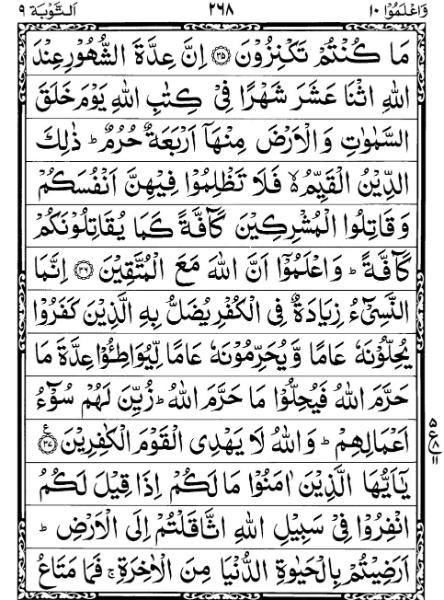 وَاعْلَمُوْٓا ١٠ ٢٦٨ اَلتَّوْبَة ٩
مَا كُنْتُمْ تَكْنِزُوْنَ ﴿٣٥﴾ اِنَّ عِدَّةَ الشُّهُوْرِ عِنْدَ
اللّٰهِ اثْنَا عَشَرَ شَهْرًا فِىْ كِتٰبِ اللّٰهِ يَوْمَ خَلَقَ
السَّمٰوٰتِ وَالْاَرْضَ مِنْهَآ اَرْبَعَةٌ حُرُمٌ ؕ ذٰلِكَ
الدِّيْنُ الْقَيِّمُ ۙ فَلَا تَظْلِمُوْا فِيْهِنَّ اَنْفُسَكُمْ
وَقَاتِلُوا الْمُشْرِكِيْنَ كَآفَّةً كَمَا يُقَاتِلُوْنَكُمْ
كَآفَّةً ؕ وَاعْلَمُوْٓا اَنَّ اللّٰهَ مَعَ الْمُتَّقِيْنَ ﴿٣٦﴾ اِنَّمَا
النَّسِىْٓءُ زِيَادَةٌ فِى الْكُفْرِ يُضَلُّ بِهِ الَّذِيْنَ كَفَرُوْا
يُحِلُّوْنَهٗ عَامًا وَّيُحَرِّمُوْنَهٗ عَامًا لِّيُوَاطِـُٔوْا عِدَّةَ مَا
حَرَّمَ اللّٰهُ فَيُحِلُّوْا مَا حَرَّمَ اللّٰهُ ؕ زُيِّنَ لَهُمْ سُوْٓءُ
اَعْمَالِهِمْ ؕ وَاللّٰهُ لَا يَهْدِى الْقَوْمَ الْكٰفِرِيْنَ ﴿٣٧﴾ ع
٥ ع ٨ ١١
يٰٓاَيُّهَا الَّذِيْنَ اٰمَنُوْا مَا لَكُمْ اِذَا قِيْلَ لَكُمُ
انْفِرُوْا فِىْ سَبِيْلِ اللّٰهِ اثَّاقَلْتُمْ اِلَى الْاَرْضِ ؕ
اَرَضِيْتُمْ بِالْحَيٰوةِ الدُّنْيَا مِنَ الْاٰخِرَةِ ۚ فَمَا مَتَاعُ